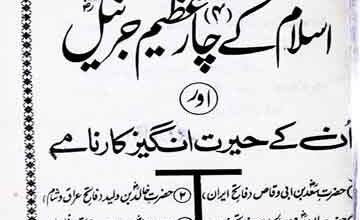 اسلام کے چار (۴) عظیم جرنیل
اور
اُن کے حیرت انگیز کارنامے
حضرت سعد بن ابی وقاص (فاتح ایران) ② حضرت خالد بن ولید (فاتح عراق و شام)